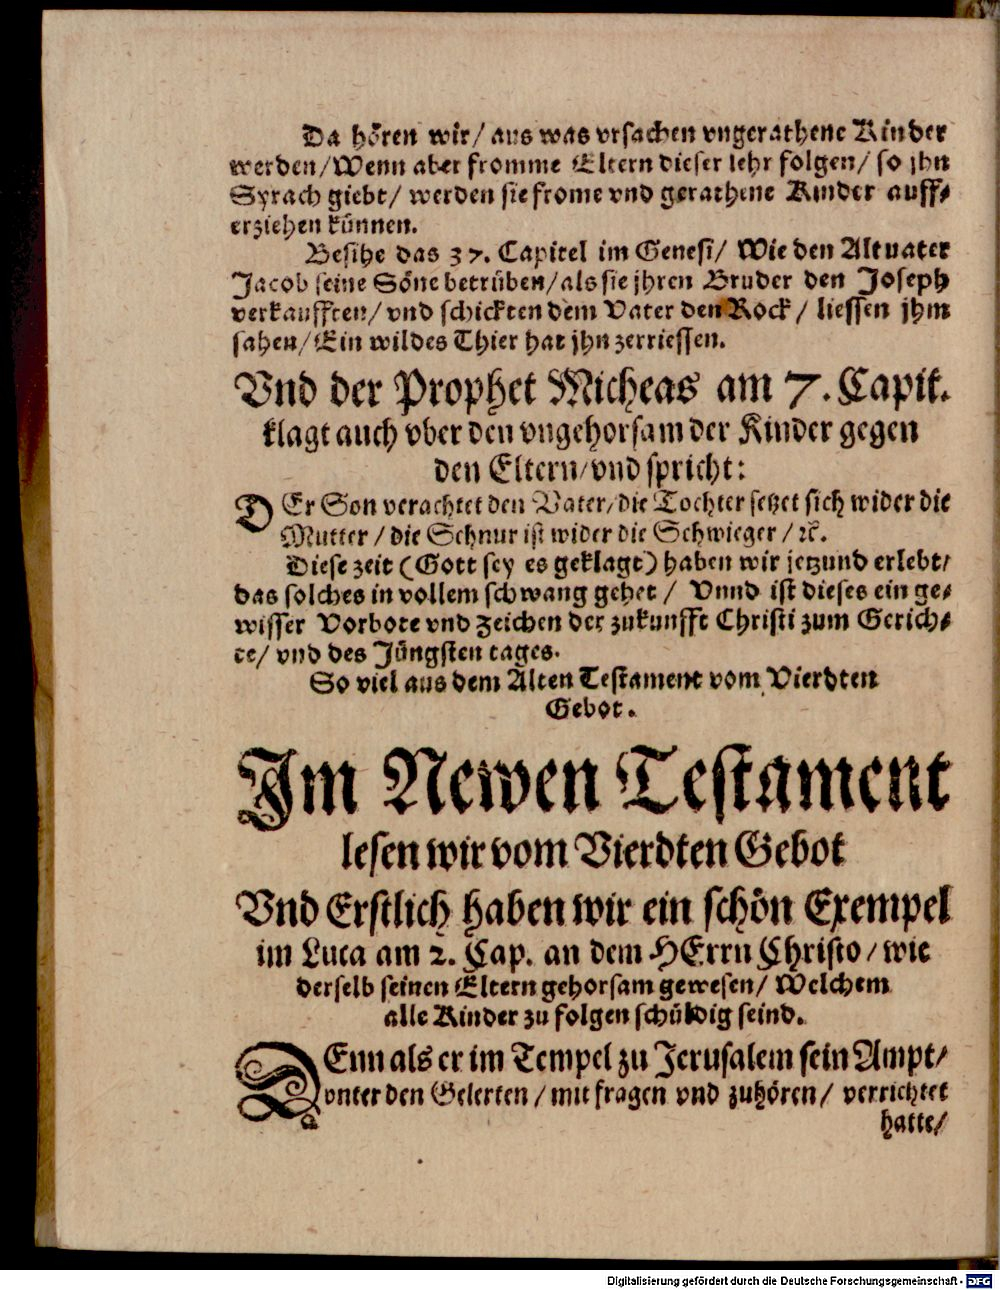 Da hören wir/ aus was vrsachen vngerathene Kinder
werden/Wenn aber fromme Eltern dieser lehr folgen/ so jhn
Syrach giebt/ werden sie frome vnd gerathene Kinder auff⸗
erziehen künnen.
Besihe das 37. Capitel im Genesi/ Wie den Altuater
Jacob seine Söne betrüben/als sie jhren Bruder den Joseph
verkaufften/ vnd schickten dem Vater den Rock/ liessen jhm
sahen/Ein wildes Thier hat jhn zerriessen.
Vnd der Prophet Micheas am 7. Capit.
klagt auch vber den vngehorsam der Kinder gegen
den Eltern/vnd spricht:
DEr Son verachtet den Vater/die Tochter setzet sich wider die
Mutter/die Schnur ist wider die Schwieger/ ꝛc.
Diese zeit (Gott sey es geklagt) haben wir jetzund erlebt/
das solches in vollem schwang gehet/ Vnnd ist dieses ein ge⸗
wisser Vorbote vnd Zeichen der zukunfft Christi zum Gerich⸗
te/ vnd des Jüngsten tages.
So viel aus dem Alten Testament vom Vierdten
Gebot.
Im Newen Testament
lesen wir vom Vierdten Gebot
Vnd Erstlich haben wir ein schön Exempel
im Luca am 2. Cap. an dem HErrn Christo/wie
derselb seinen Eltern gehorsam gewesen/ Welchem
alle Kinder zu folgen schüldig seind.
DEnn als er im Tempel zu Jerusalem sein Ampt/
vnter den Gelerten/mit fragen vnd zuhören/ verrichtet
hatte/
Digitalisierung gefördert durch die Deutsche Forschungsgemeinschaft - DFG